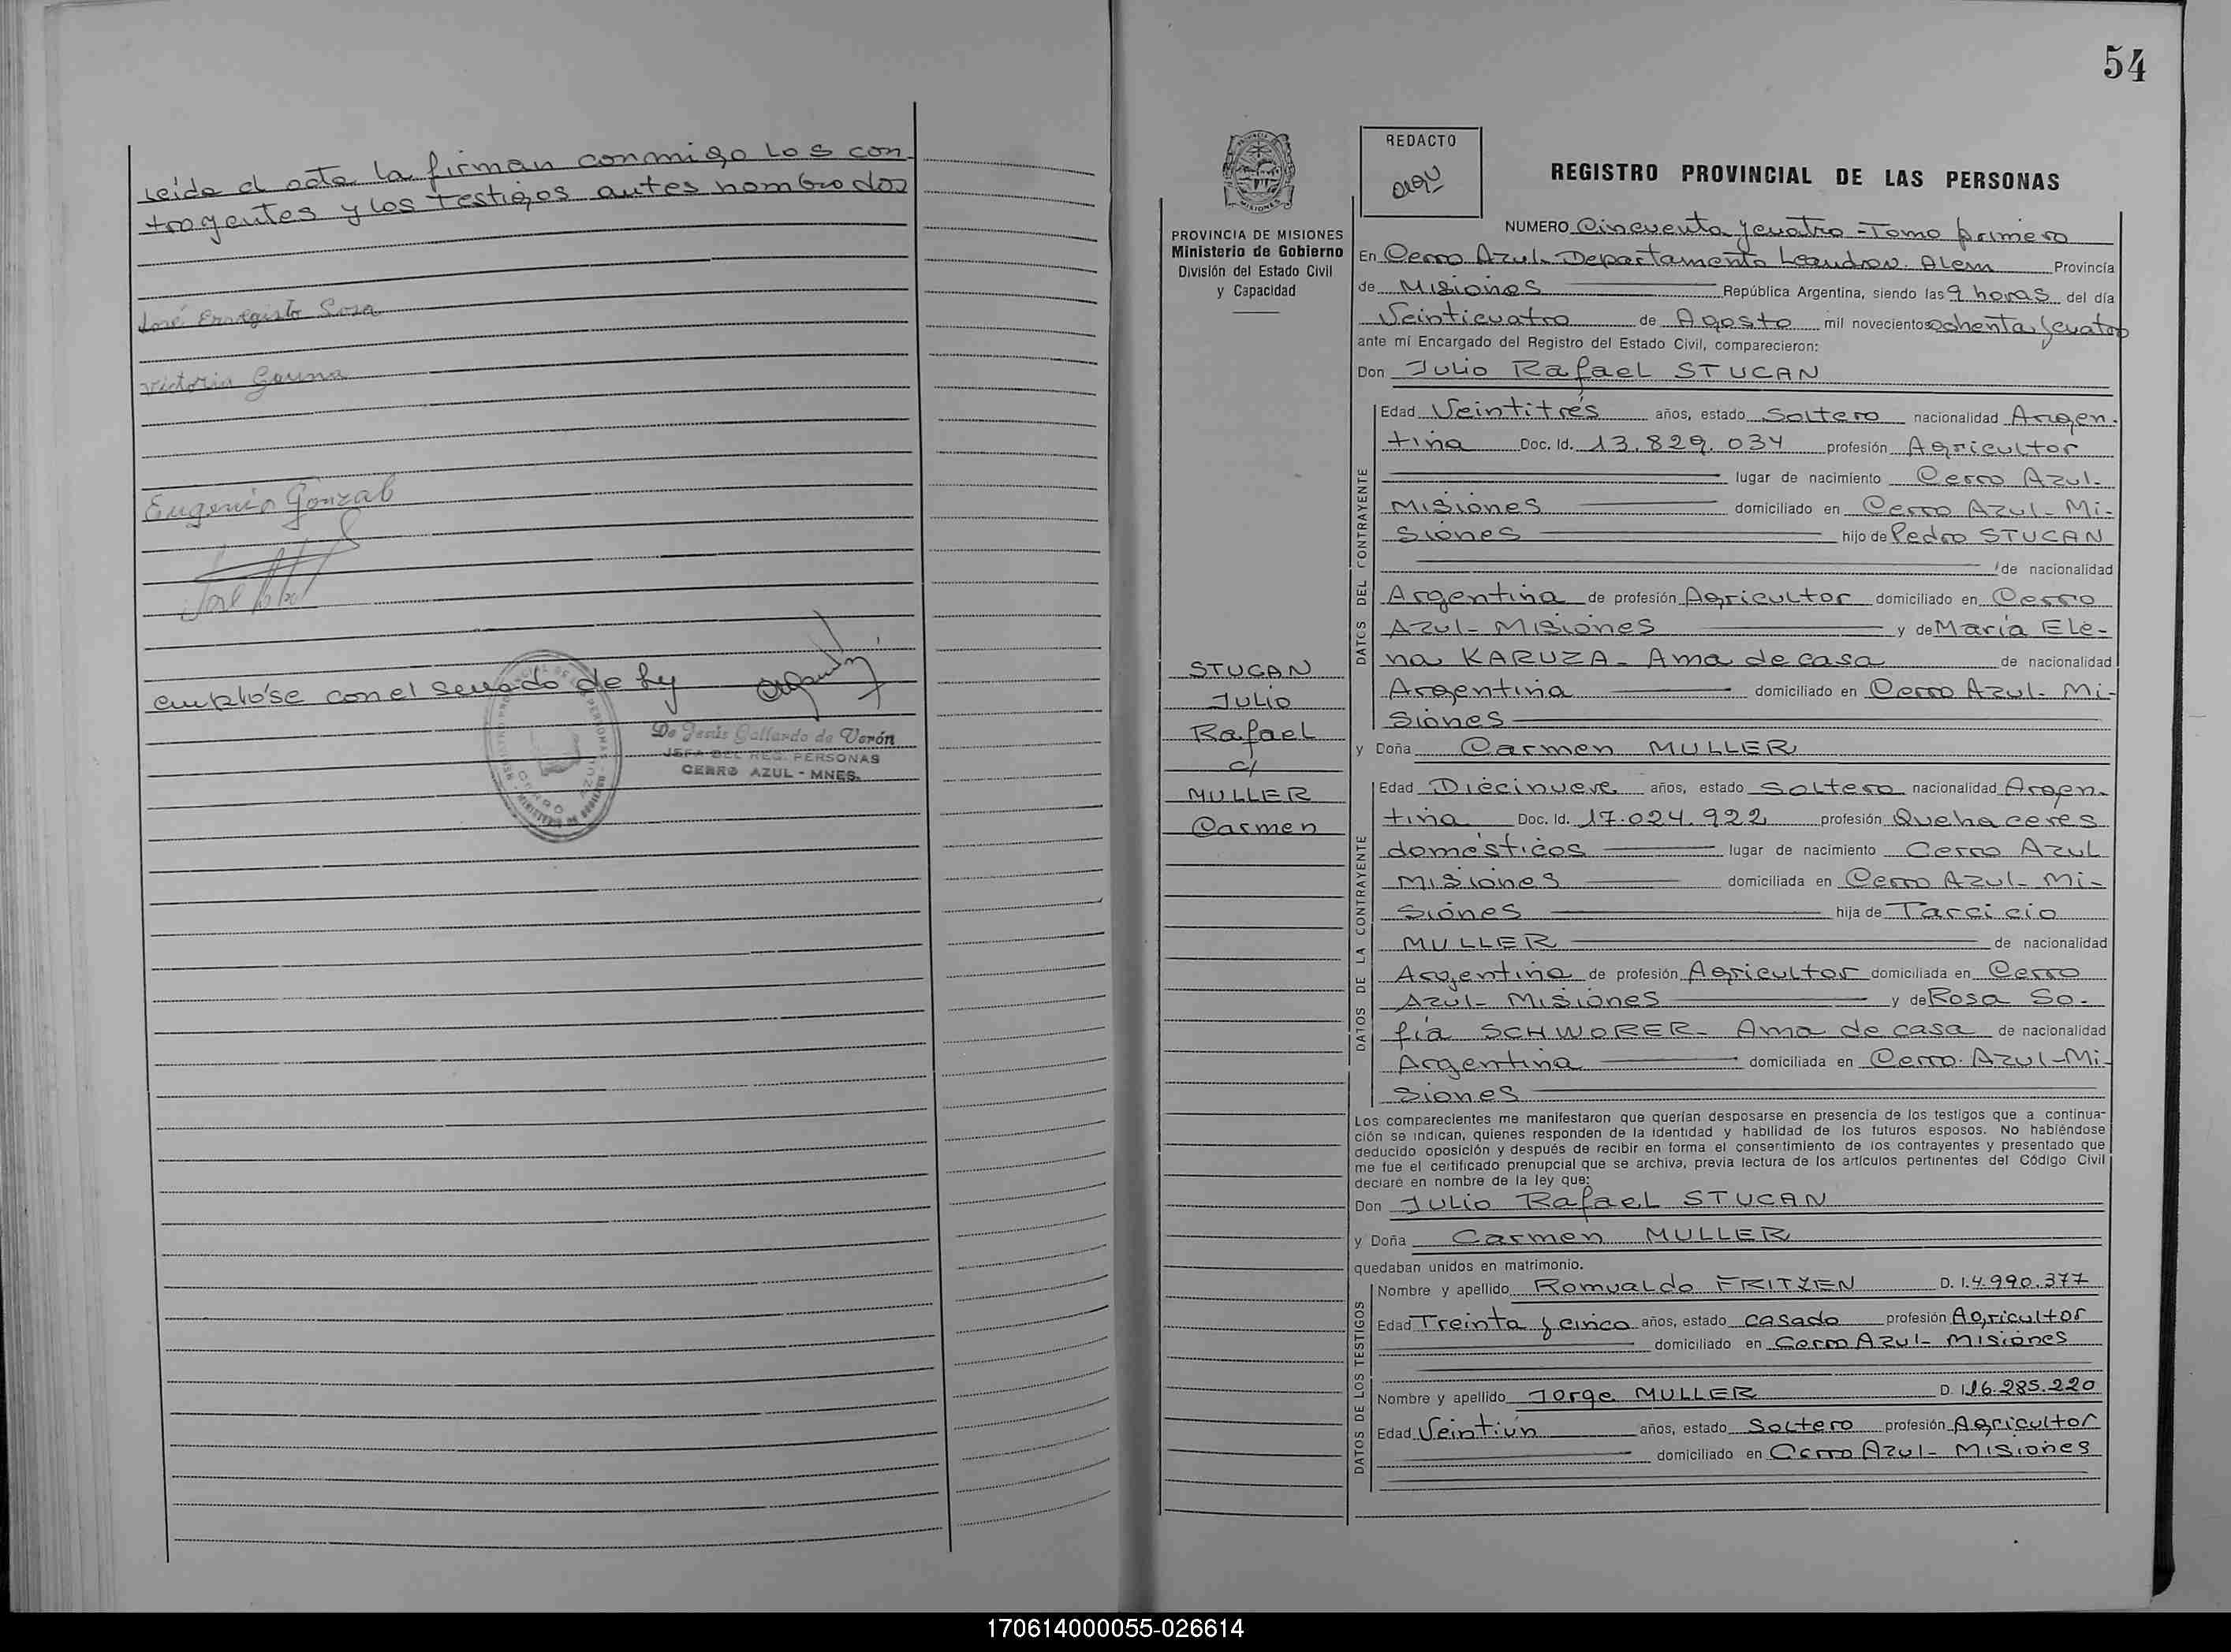 Leida el acta la firman conmigo los con
trayentes y los testigos antes nombrados
José Evaristo Sosa
Victoria Gauna
Eugenio Gonzal
José
cumplióse con el sellado de ley
De Jesús Gallardo de Verón
JEFA DEL REG. PERSONAS
CERRO AZUL - MNES.
54
PROVINCIA DE MISIONES
Ministerio de Gobierno
División del Estado Civil
y Capacidad
STUCAN
Julio
Rafael
c/
MULLER
Carmen
REDACTO
REGISTRO PROVINCIAL DE LAS PERSONAS
NUMERO Cincuenta y cuatro - Tomo primero
En Cerro Azul. Departamento Leandro N. Alem Provincia
de Misiones República Argentina, siendo las 9 horas del día
Veinticuatro de Agosto mil novecientos ochenta y cuatro
ante mí Encargado del Registro del Estado Civil, comparecieron:
Don Julio Rafael STUCAN
DATOS DEL CONTRAYENTE
Edad Veintitrés años, estado Soltero nacionalidad Argen-
tina Doc. Id. 13.829.034 profesión Agricultor
lugar de nacimiento Cerro Azul-
Misiones domiciliado en Cerro Azul - Mi-
siones hijo de Pedro STUCAN
de nacionalidad
Argentina de profesión Agricultor domiciliado en Cerro
Azul - Misiones y de María Ele-
na KARUZA - Ama de casa de nacionalidad
Argentina domiciliado en Cerro Azul - Mi-
siones
y Doña Carmen MULLER
DATOS DE LA CONTRAYENTE
Edad Diecinueve años, estado Soltera nacionalidad Argen-
tina Doc. Id. 17.024.922 profesión Quehaceres
domésticos lugar de nacimiento Cerro Azul
Misiones domiciliada en Cerro Azul - Mi-
siones hija de Tarcicio
MULLER de nacionalidad
Argentina de profesión Agricultor domiciliada en Cerro
Azul - Misiones y de Rosa So-
fía SCHWORER - Ama de casa de nacionalidad
Argentina domiciliada en Cerro Azul - Mi-
siones
Los comparecientes me manifestaron que querían desposarse en presencia de los testigos que a continua-
ción se indican, quienes responden de la identidad y habilidad de los futuros esposos. No habiéndose
deducido oposición y después de recibir en forma el consentimiento de los contrayentes y presentado que
me fue el certificado prenupcial que se archiva, previa lectura de los artículos pertinentes del Código Civil
declaré en nombre de la ley que:
Don Julio Rafael STUCAN
y Doña Carmen MULLER
quedaban unidos en matrimonio.
DATOS DE LOS TESTIGOS
Nombre y apellido Romualdo FRITZEN D. I. 4.990.377
Edad Treinta y cinco años, estado casado profesión Agricultor
domiciliado en Cerro Azul - Misiones
Nombre y apellido Jorge MULLER D. I. 16.285.220
Edad Veintiún años, estado Soltero profesión Agricultor
domiciliado en Cerro Azul - Misiones
170614000055-026614